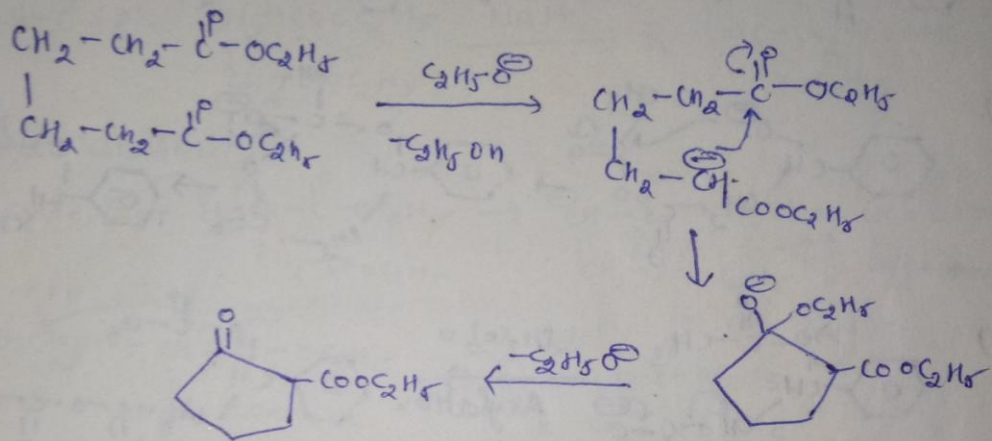 O
CH₂-CH₂-C-OC₂H₅
CH₂-CH₂-C-OC₂H₅
O
C₂H₅O⊖
-C₂H₅OH
O
CH₂-CH₂-C-OC₂H₅
CH₂-CH⊖
COOC₂H₅
O⊖ OC₂H₅
COOC₂H₅
-C₂H₅O⊖
O
COOC₂H₅